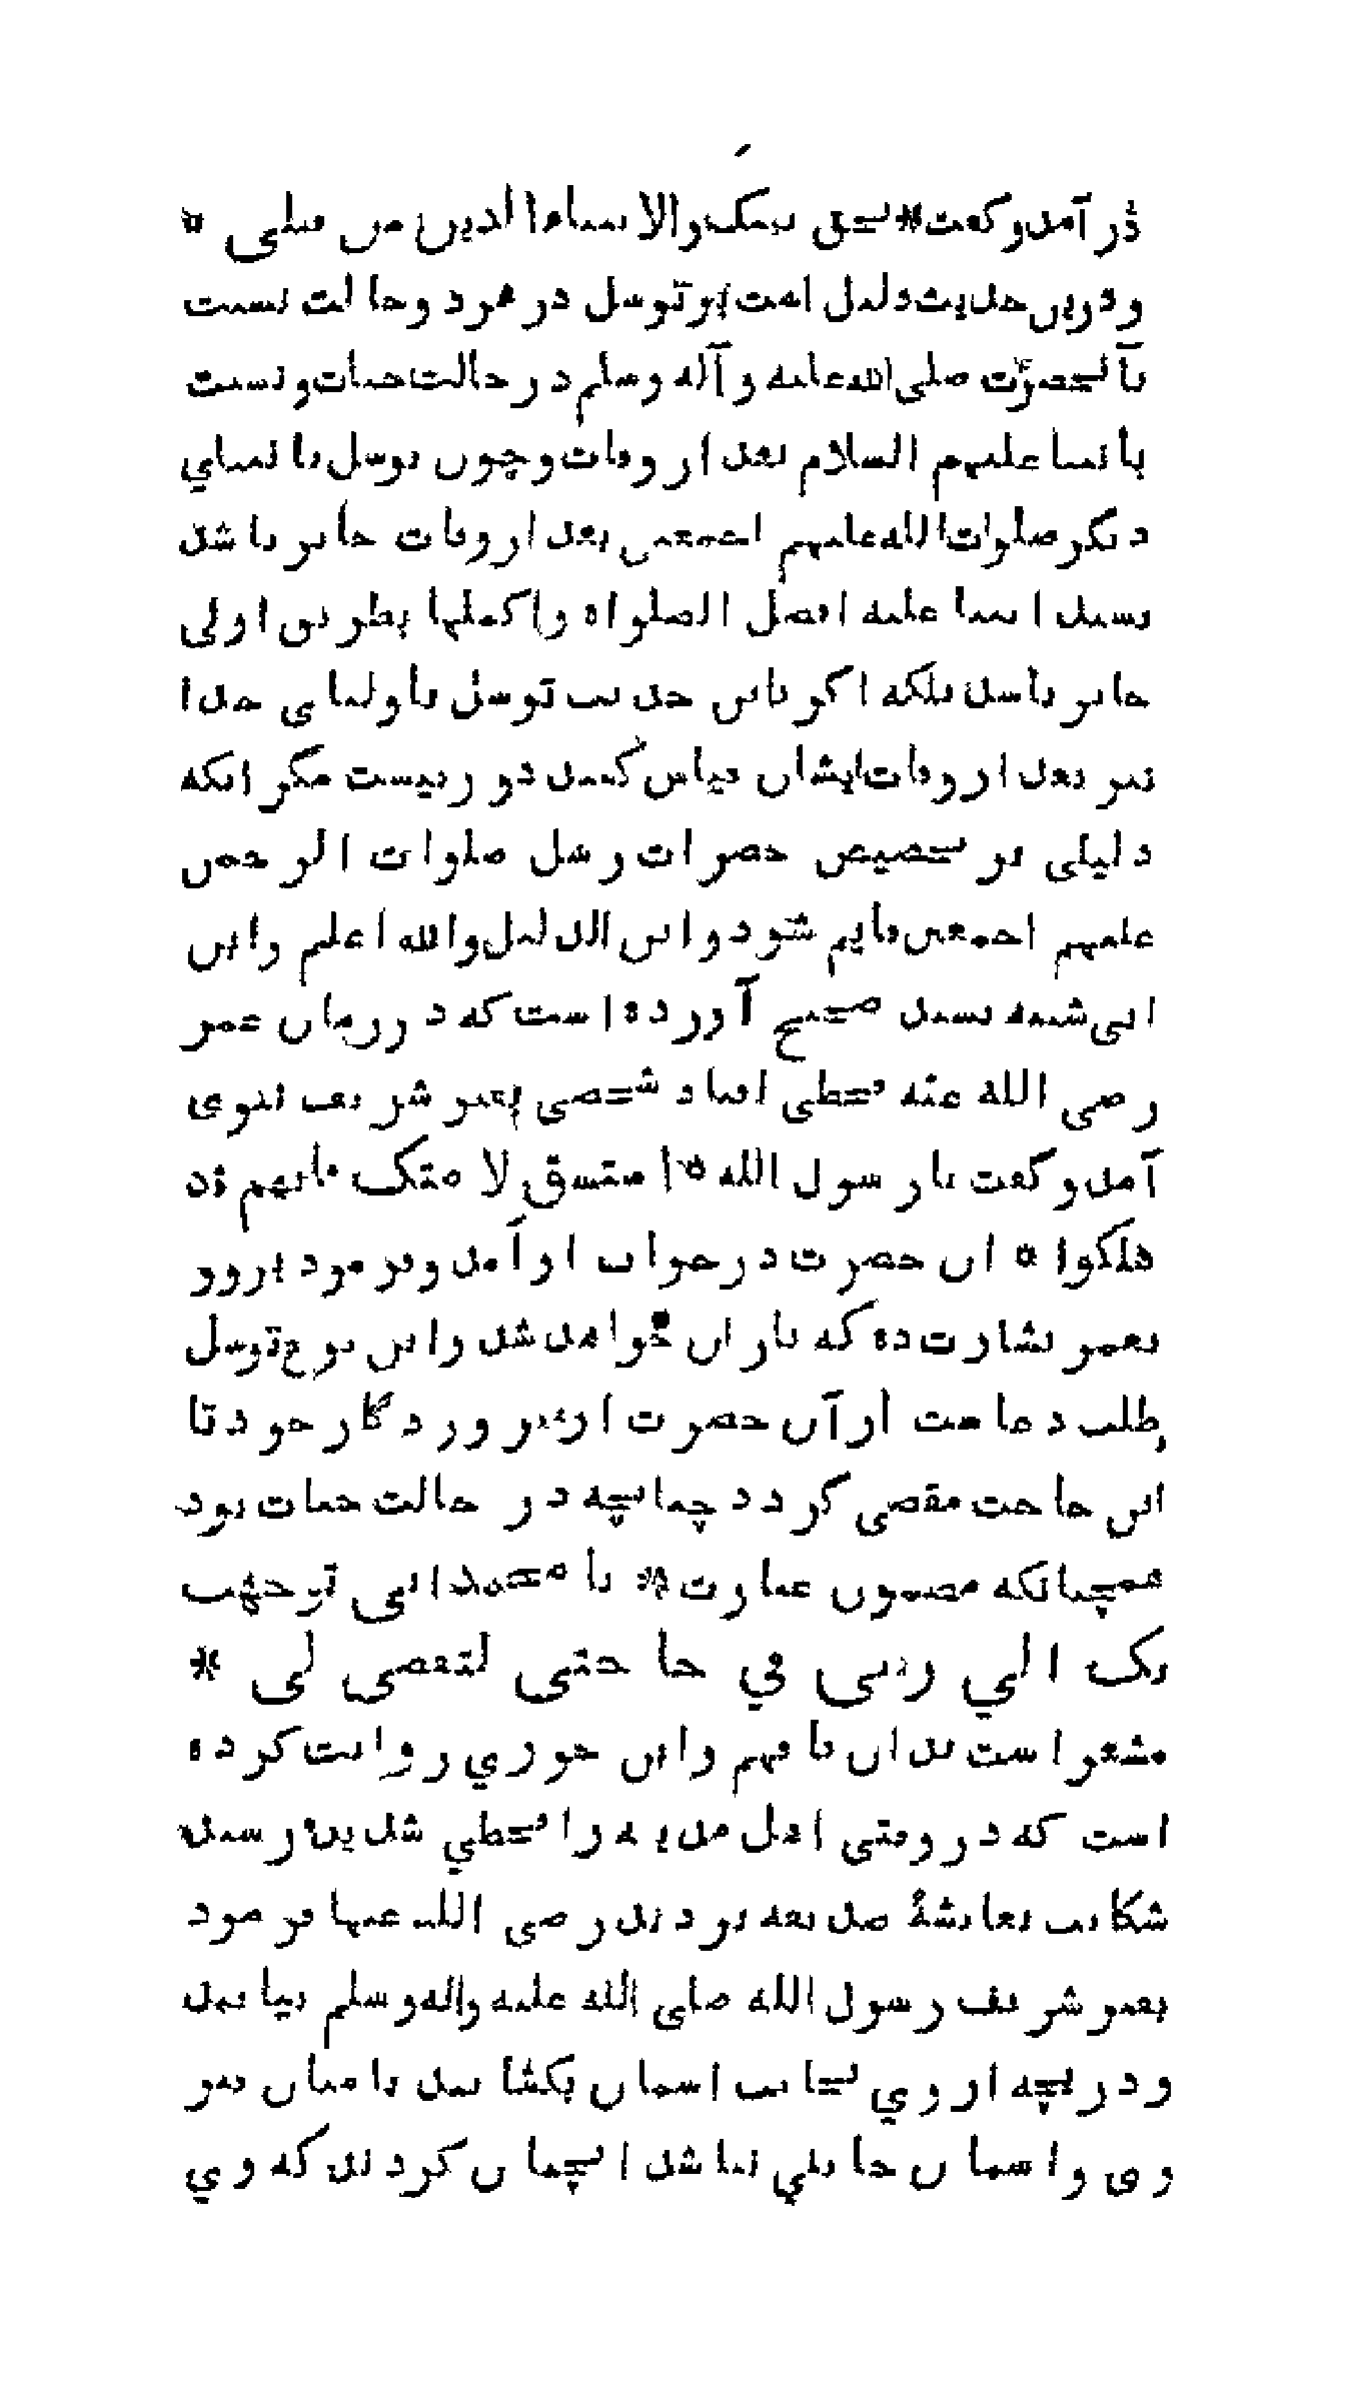 در آمد و گفت * بحق نبیک والانبیاء الذین من قبلی *
و درین حدیث دلیل است بر توسل در هر دو حالت نسبت
بآنحضرت صلی الله علیه و آله وسلم در حالت حیات و نسبت
بانبیا علیهم السلام بعد از وفات و چون توسل بانبیای
دیگر صلوات الله علیهم اجمعین بعد از وفات جایز باشد
بسید انبیا علیه افضل الصلواة واکملها بطریق اولی
جایز باشد بلکه اگر باین حدیث توسل باولیای خدا
نیز بعد از وفات ایشان قیاس کنند دور نیست مگر انکه
دلیلی بر تخصیص حضرات رسل صلوات الرحمن
علیهم اجمعین قایم شود و این الدلیل والله اعلم وابن
ابی شیبه بسند صحیح آورده است که در زمان عمر
رضی الله عنه قحطی افتاد شخصی بقبر شریف نبوی
آمد و گفت یا رسول الله * استسق لامتک فانهم قد
هلکوا * ان حضرت در خواب او آمد و فرمود برو و
بعمر بشارت ده که باران خواهد شد و این نوع توسل
طلب دعاست از آن حضرت از پرورد گار خود تا
این حاجت مقضی گردد چنانچه در حالت حیات بود
همچنانکه مضمون عبارت * یا محمد انی توجهت
بک الي ربی في حاجتی لتقضی لی *
مشعر است بدان یافهم وابن جوزي روایت کرده
است که در وقتی اهل مدینه را قحطي شدید رسید
شکایت بعایشهٔ صدیقه بردند رضی الله عنها فرمود
بقبر شریف رسول الله صلی الله علیه واله وسلم بیایید
و دریچه از وي بجانب اسمان بکشایید تا میان قبر
وی و اسمان حایلي نباشد انچنان کردند که وي